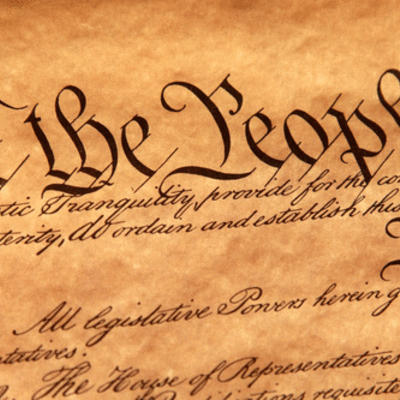 the People
tic Tranquility, provide for the co
terity, do ordain and establish this
All legislative Powers herein g
ntatives.
The House of Representatives
requisite